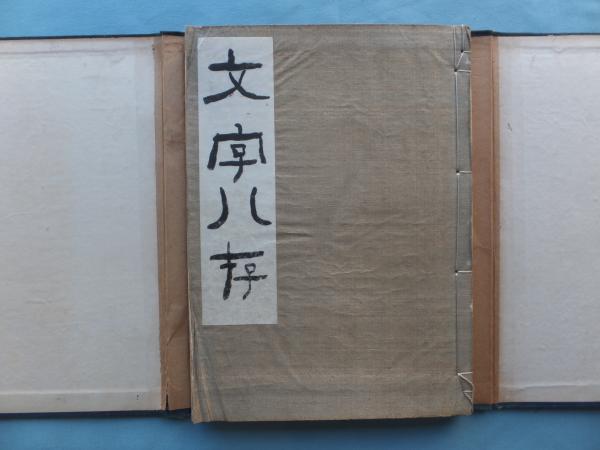 文字八存